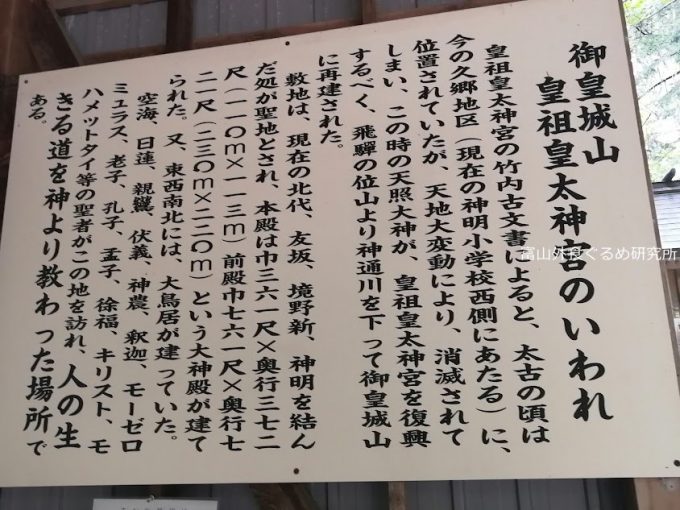 御皇城山
皇祖皇太神宮のいわれ
皇祖皇太神宮の竹内古文書によると、太古の頃は
今の久郷地区(現在の神明小学校西側にあたる)に、
位置されていたが、天地大変動により、消滅されて
しまい、この時の天照大神が、皇祖皇太神宮を復興
するべく、飛騨の位山より神通川を下って御皇城山
に再建された。
敷地は、現在の北代、友坂、境野新、神明を結ん
だ処が聖地とされ、本殿は巾三六一尺×奥行三七二
尺(一一〇m×一一三m)前殿巾七六一尺×奥行七
二一尺(二三〇m×二二〇m)という大神殿が建て
られた。又、東西南北には、大鳥居が建っていた。
空海、日蓮、親鸞、伏義、神農、釈迦、モーゼロ
ミュラス、老子、孔子、孟子、徐福、キリスト、モ
ハメットタイ等の聖者がこの地を訪れ、人の生
きる道を神より教わった場所で
ある。
富山外食ぐるめ研究所